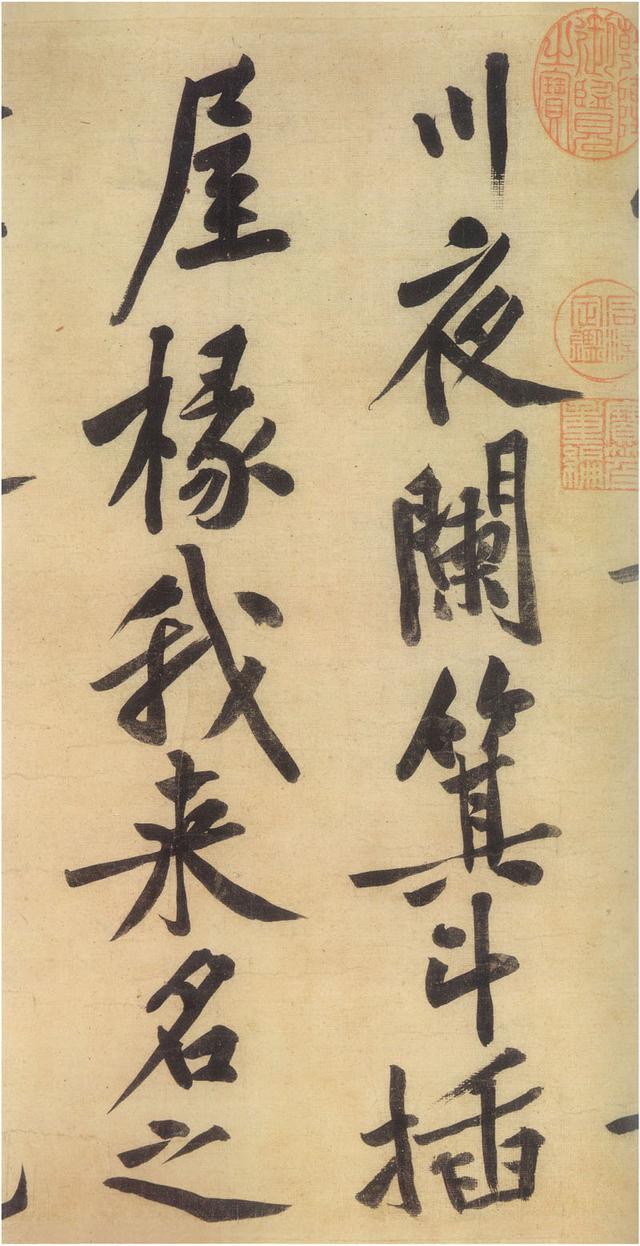 乾隆御覽之寶
石渠定鑑
寶笈重編
川夜闌箕斗插
屋椽我来名之